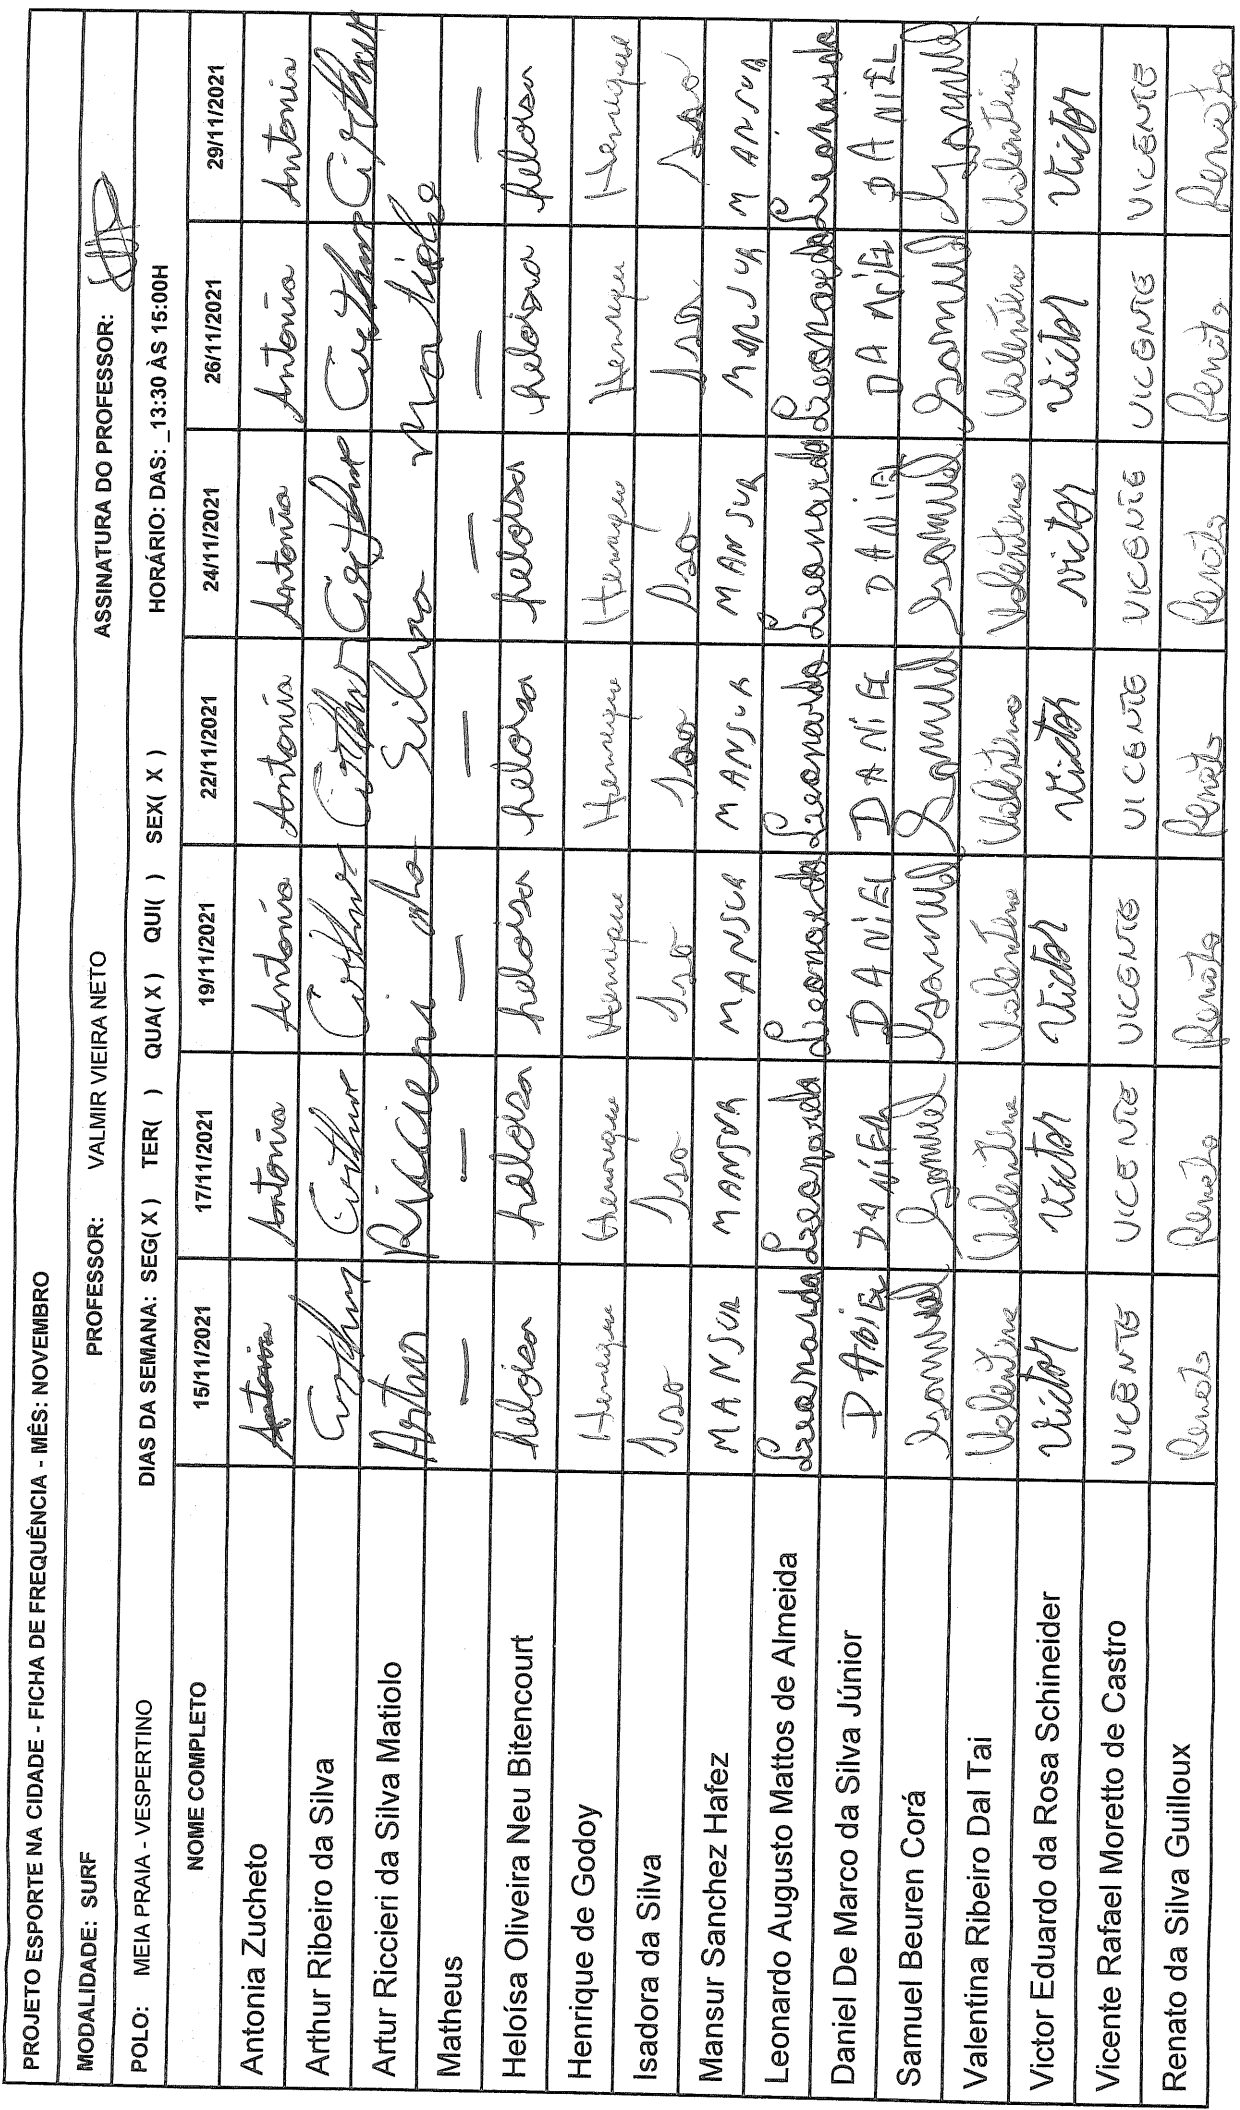 PROJETO ESPORTE NA CIDADE - FICHA DE FREQUÊNCIA - MÊS: NOVEMBRO
MODALIDADE: SURF PROFESSOR: VALMIR VIEIRA NETO ASSINATURA DO PROFESSOR:
POLO: MEIA PRAIA - VESPERTINO DIAS DA SEMANA: SEG( X ) TER( ) QUA( X ) QUI( ) SEX( X ) HORÁRIO: DAS: _13:30 ÀS 15:00H
NOME COMPLETO 15/11/2021 17/11/2021 19/11/2021 22/11/2021 24/11/2021 26/11/2021 29/11/2021
Antonia Zucheto Antonia Antonia Antonia Antonia Antonia Antonia Antonia
Arthur Ribeiro da Silva Arthur Arthur Arthur Arthur Arthur Arthur Arthur
Artur Riccieri da Silva Matiolo Artur Riccieri da Silva Matiolo
Matheus — — — — — — —
Heloísa Oliveira Neu Bitencourt heloisa heloisa heloisa heloisa heloisa heloisa heloisa
Henrique de Godoy Henrique Henrique Henrique Henrique Henrique Henrique Henrique
Isadora da Silva Isa Isa Isa Isa Isa Isa Isa
Mansur Sanchez Hafez MANSUR MANSUR MANSUR MANSUR MANSUR MANSUR MANSUR
Leonardo Augusto Mattos de Almeida Leonardo Leonardo Leonardo Leonardo Leonardo Leonardo Leonardo
Daniel De Marco da Silva Júnior DANiEL DANiEL DANiEL DANiEL DANiEL DANiEL DANiEL
Samuel Beuren Corá Samuel Samuel Samuel Samuel Samuel Samuel Samuel
Valentina Ribeiro Dal Tai Valentina Valentina Valentina Valentina Valentina Valentina Valentina
Victor Eduardo da Rosa Schineider Victor Victor Victor Victor Victor Victor Victor
Vicente Rafael Moretto de Castro VICENTE VICENTE VICENTE VICENTE VICENTE VICENTE VICENTE
Renato da Silva Guilloux Renato Renato Renato Renato Renato Renato Renato